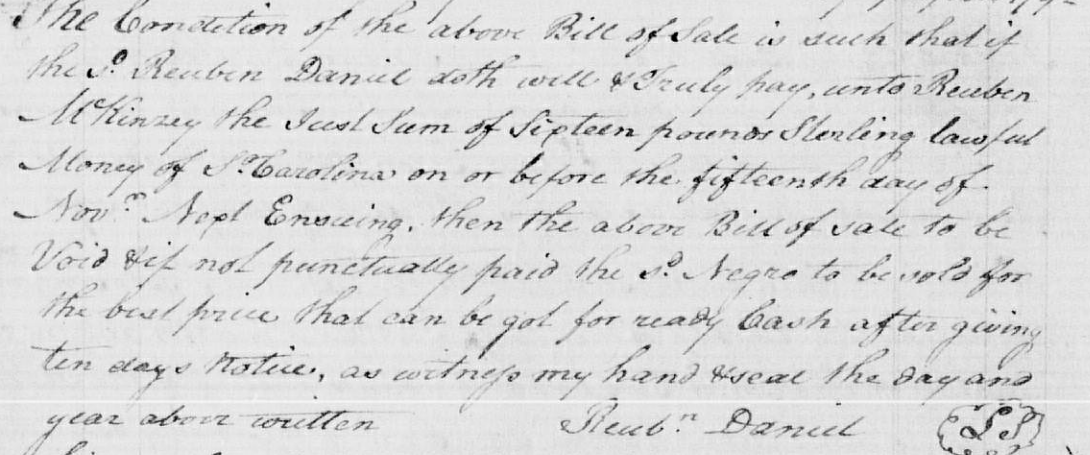 The Condition of the above Bill of Sale is such that if
the Sd. Reuben Daniel doth well & Truly pay, unto Reuben
McKinzey the Just Sum of Sixteen pounds Sterling lawful
Money of So. Carolina on or before the fifteenth day of
Novr. Next Ensueing, then the above Bill of Sale to be
Void & if not punctually paid the sd. Negro to be sold for
the best price that can be got for ready Cash after giving
ten days Notice, as witness my hand & seal the day and
year above written Reubn. Daniel LS